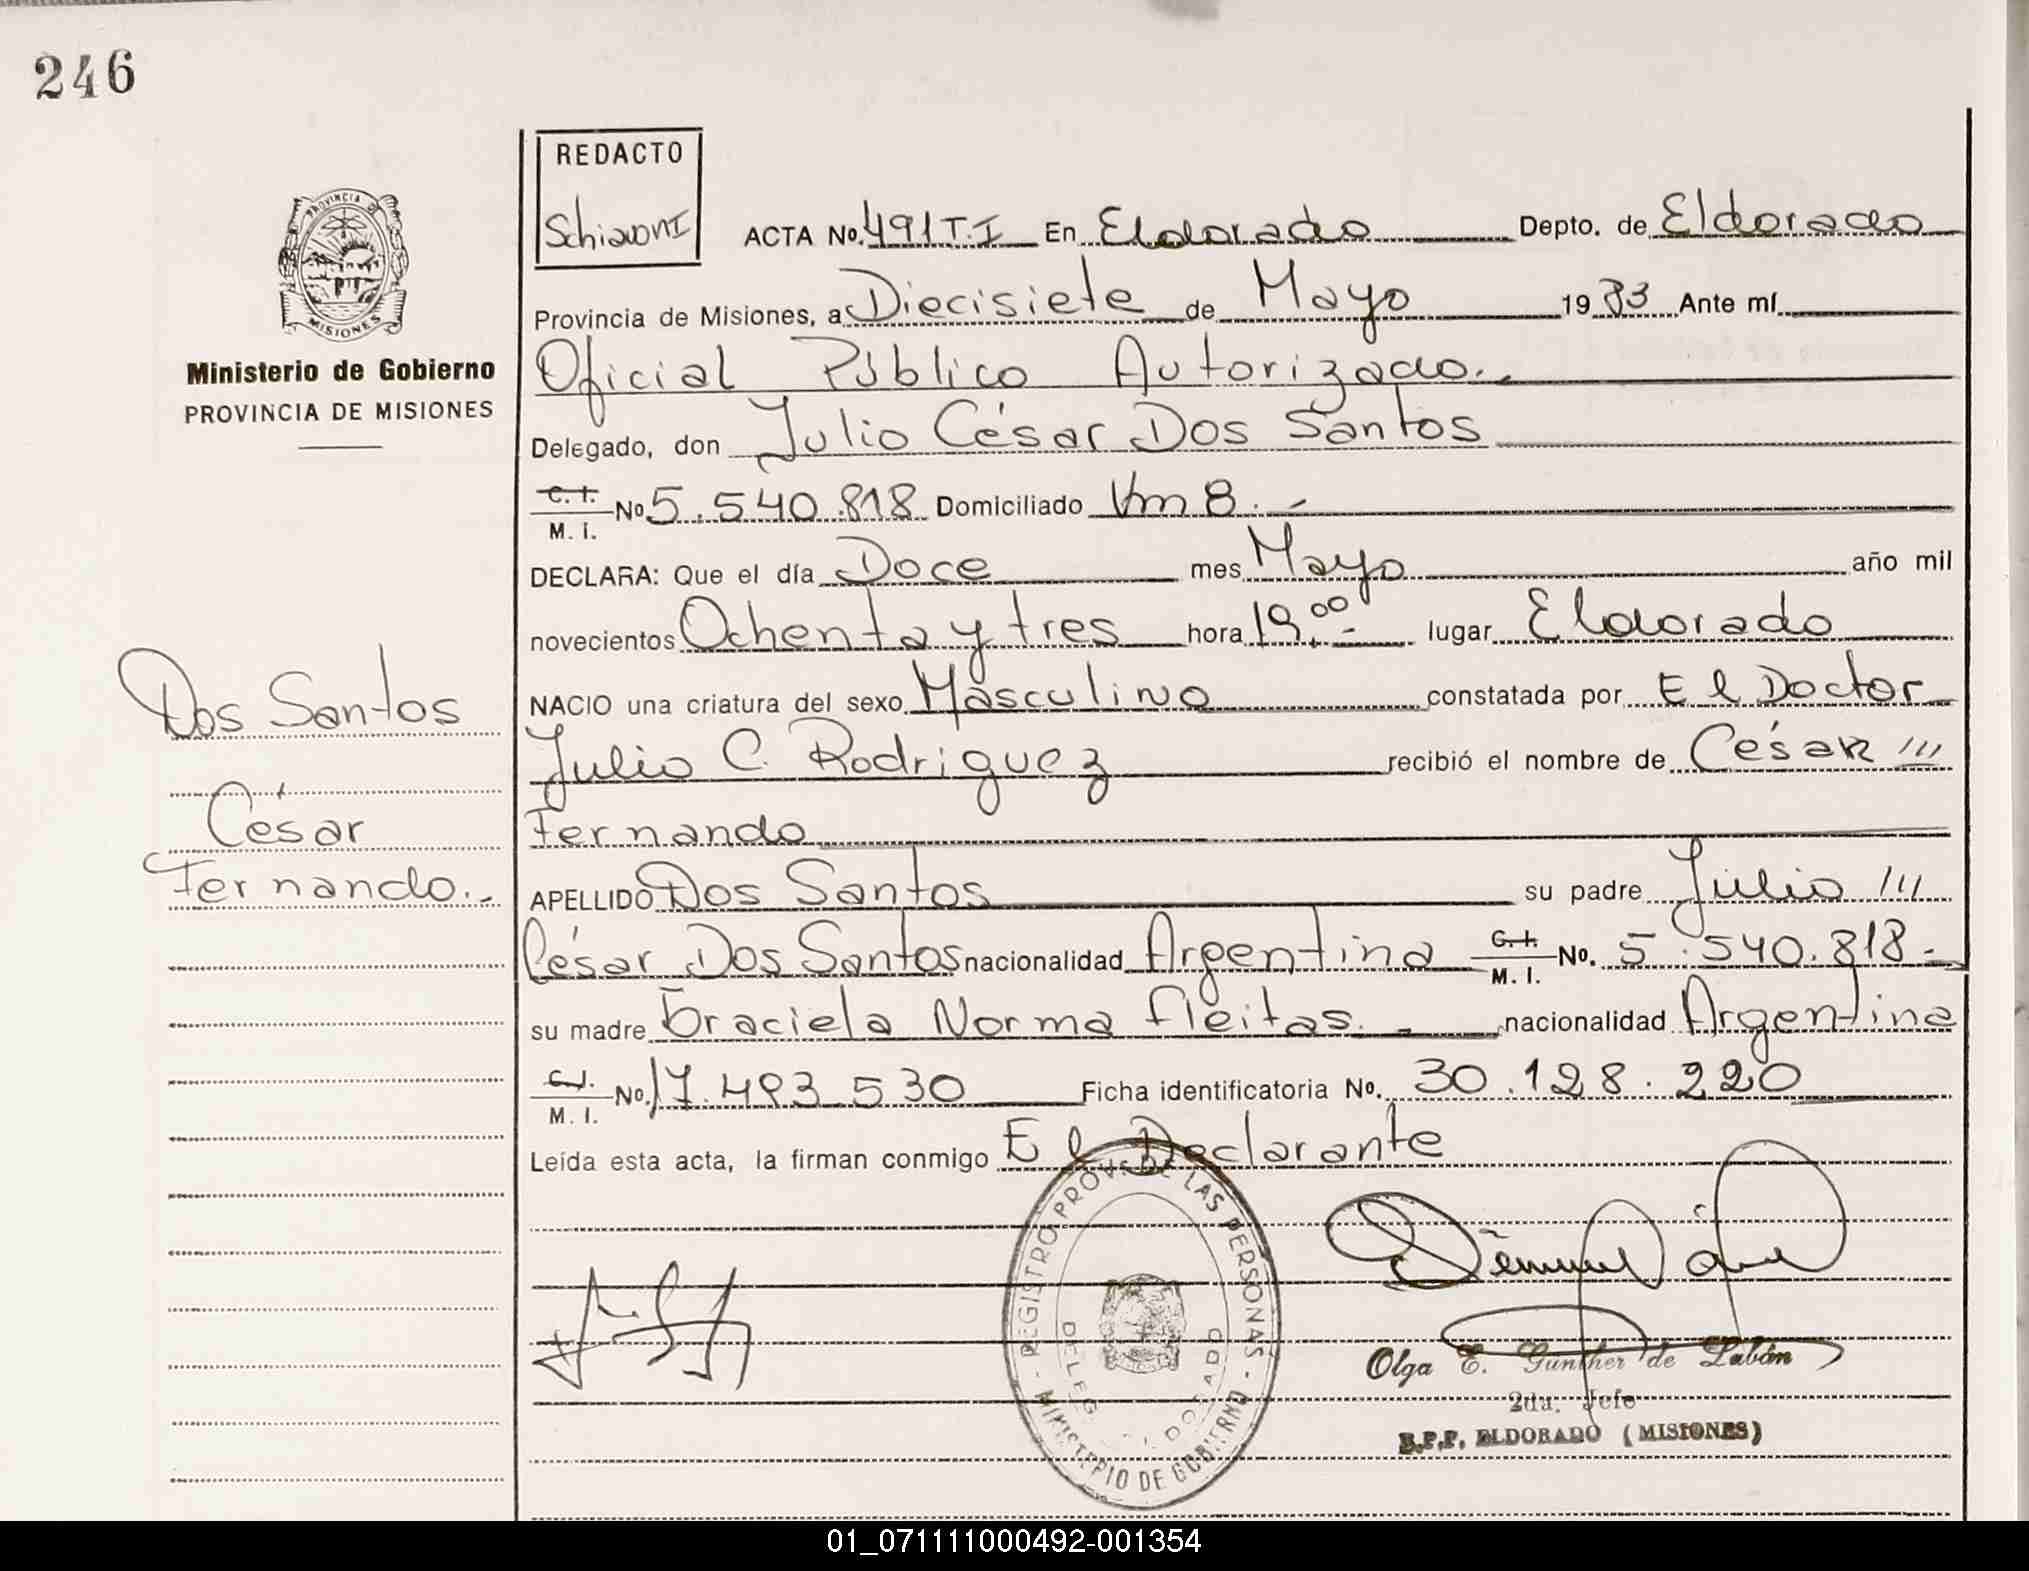 246
REDACTO
Schiavoni
PROVINCIA DE
MISIONES
Ministerio de Gobierno
PROVINCIA DE MISIONES
ACTA No. 491 T. I En Eldorado Depto. de Eldorado
Provincia de Misiones, a Diecisiete de Mayo 1983 Ante mí
Oficial Público Autorizado.-
Delegado, don Julio César Dos Santos
C. I. M. I. No 5.540.818 Domiciliado Km 8.-
DECLARA: Que el día Doce mes Mayo año mil
novecientos Ochenta y tres hora 19.00- lugar Eldorado
NACIO una criatura del sexo Masculino constatada por El Doctor
Julio C. Rodriguez recibió el nombre de César ///
Fernando
APELLIDO Dos Santos su padre Julio ///
César Dos Santos nacionalidad Argentina C. I. M. I. No. 5.540.818-
su madre Graciela Norma Fleitas.- nacionalidad Argentina
C. I. M. I. No. 17.493 530 Ficha identificatoria No. 30.128.220
Leída esta acta, la firman conmigo El Declarante
Dos Santos
César
Fernando.-
REGISTRO PROV. DE LAS PERSONAS
MINISTERIO DE GOBIERNO
Olga E. Gunther de Labán
2da. Jefe
R.P.P. ELDORADO (MISIONES)
01_071111000492-001354